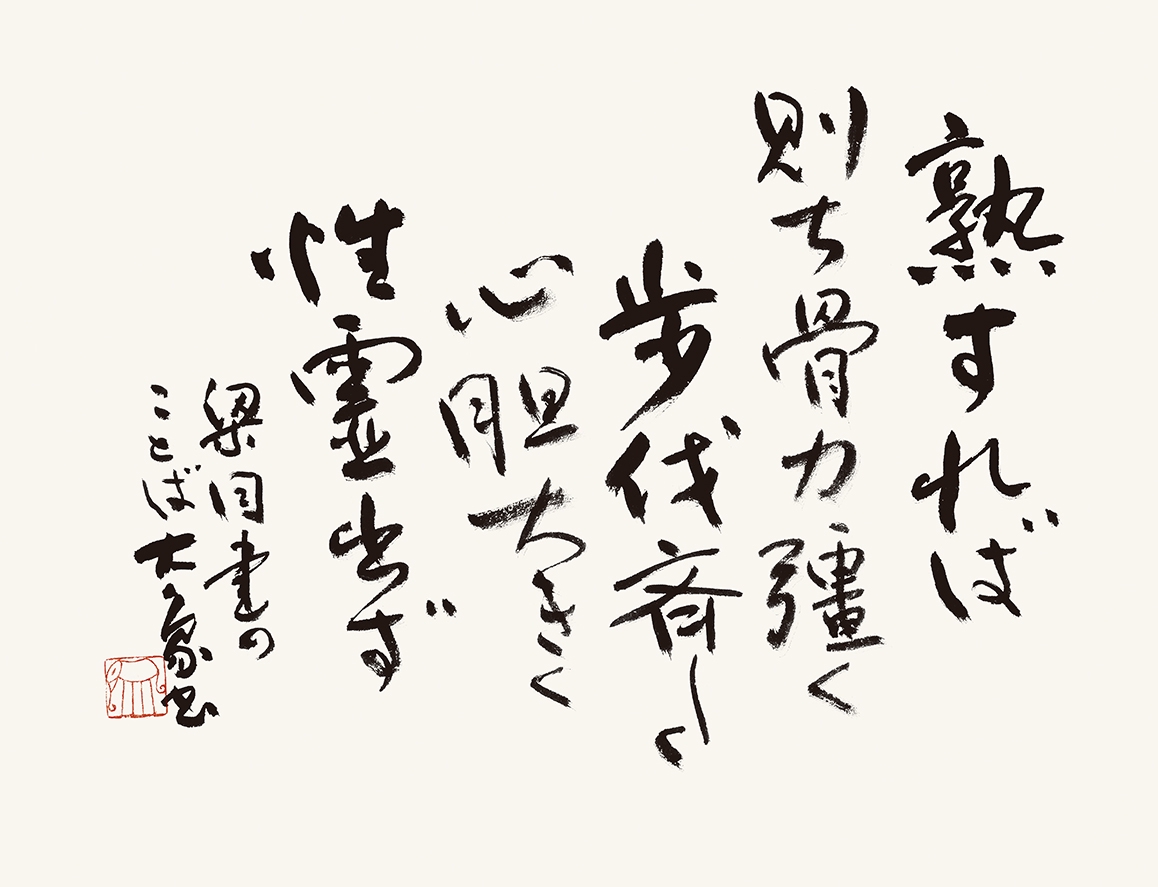 熟すれば
則ち骨力彊く
歩伐斉しく
心胆大きく
性霊出ず
梁同書の
ことば 大象書